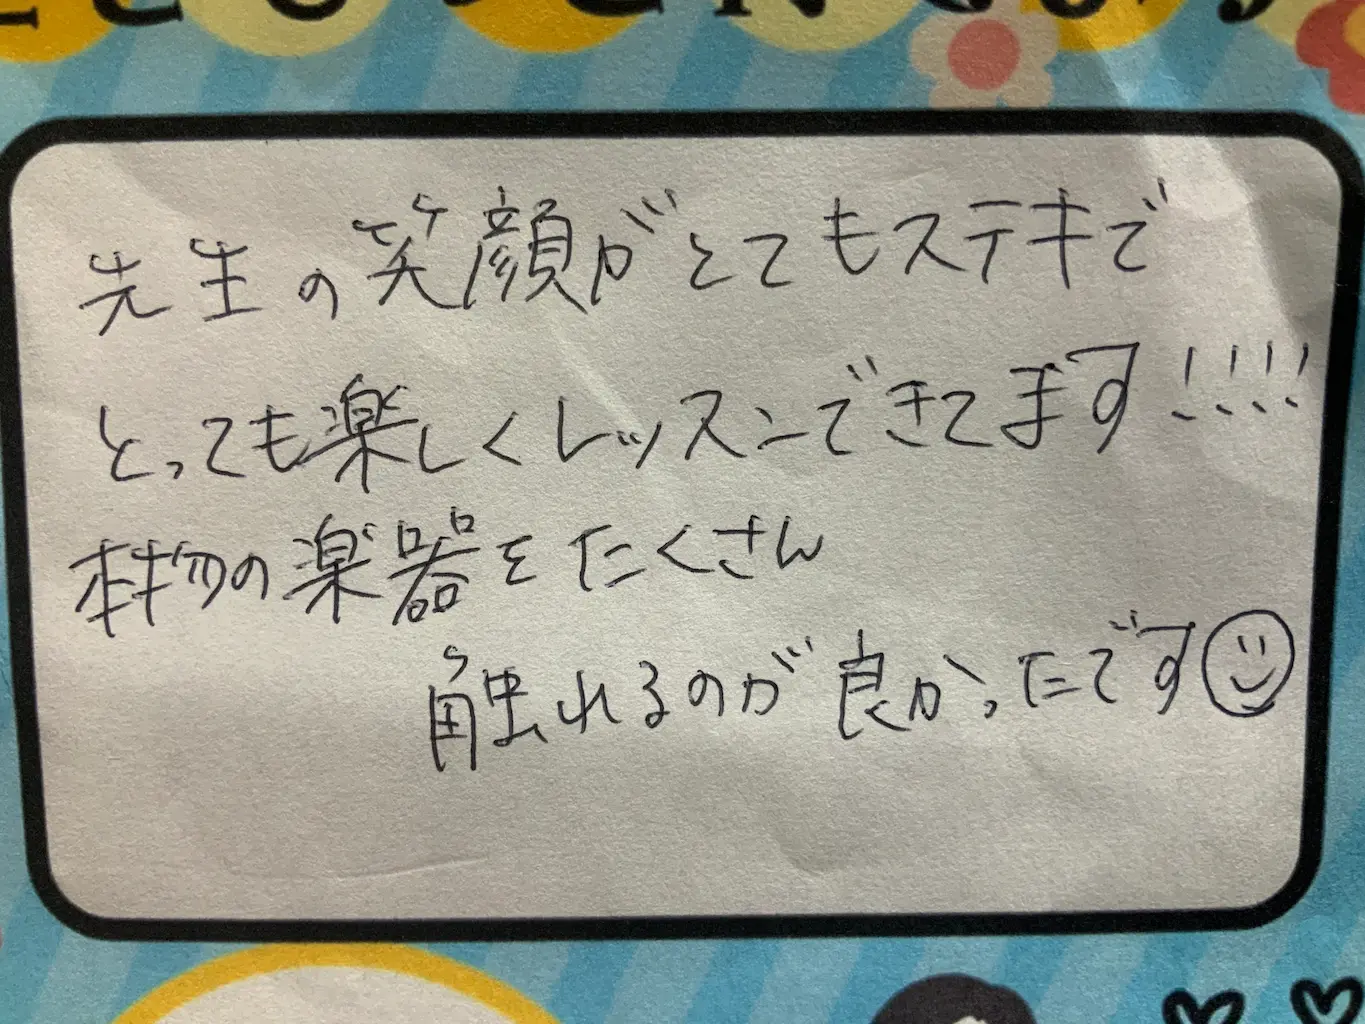 先生の笑顔がとてもステキで
とっても楽しくレッスンできてます!!!!
本物の楽器をたくさん
触れるのが良かったです